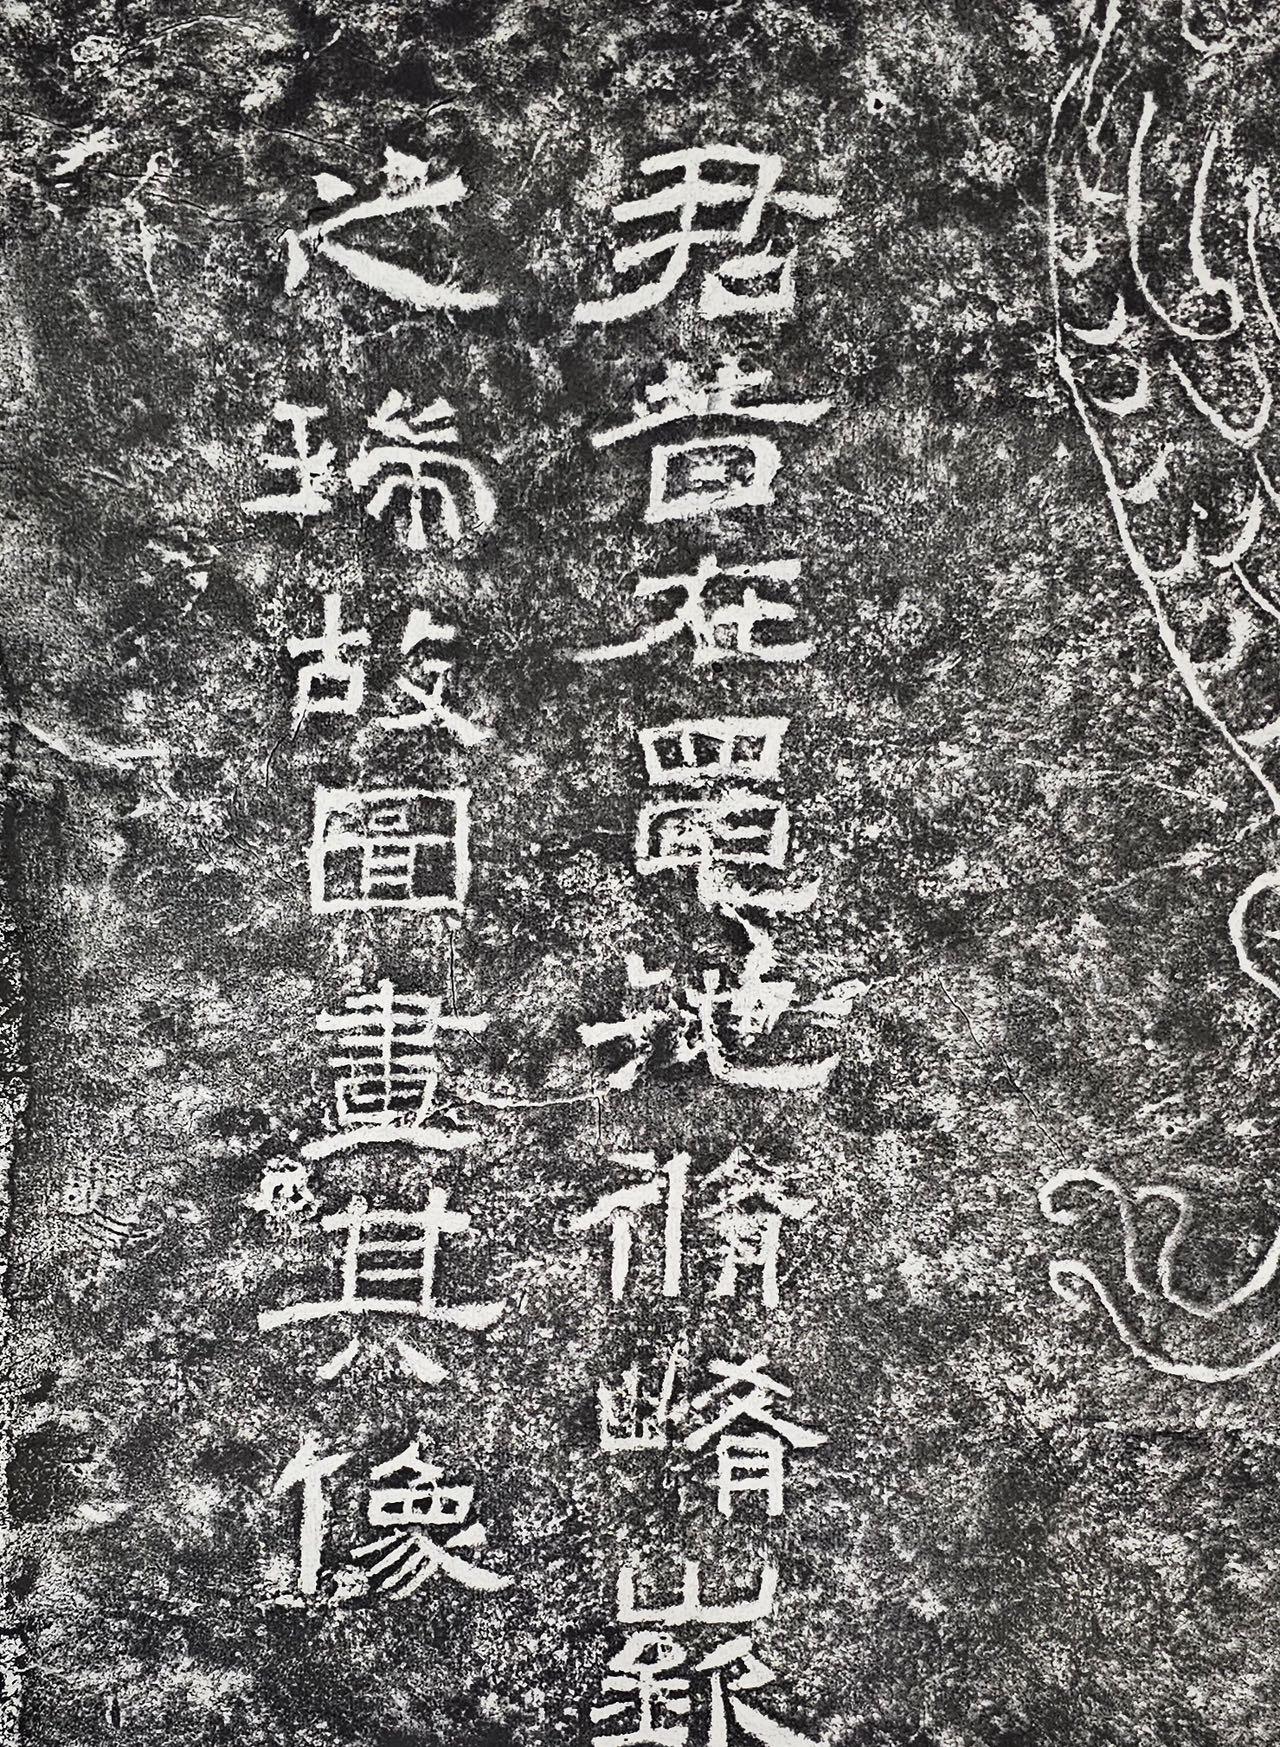 君昔在黽池脩崤嶔
之瑞故圖畫其像